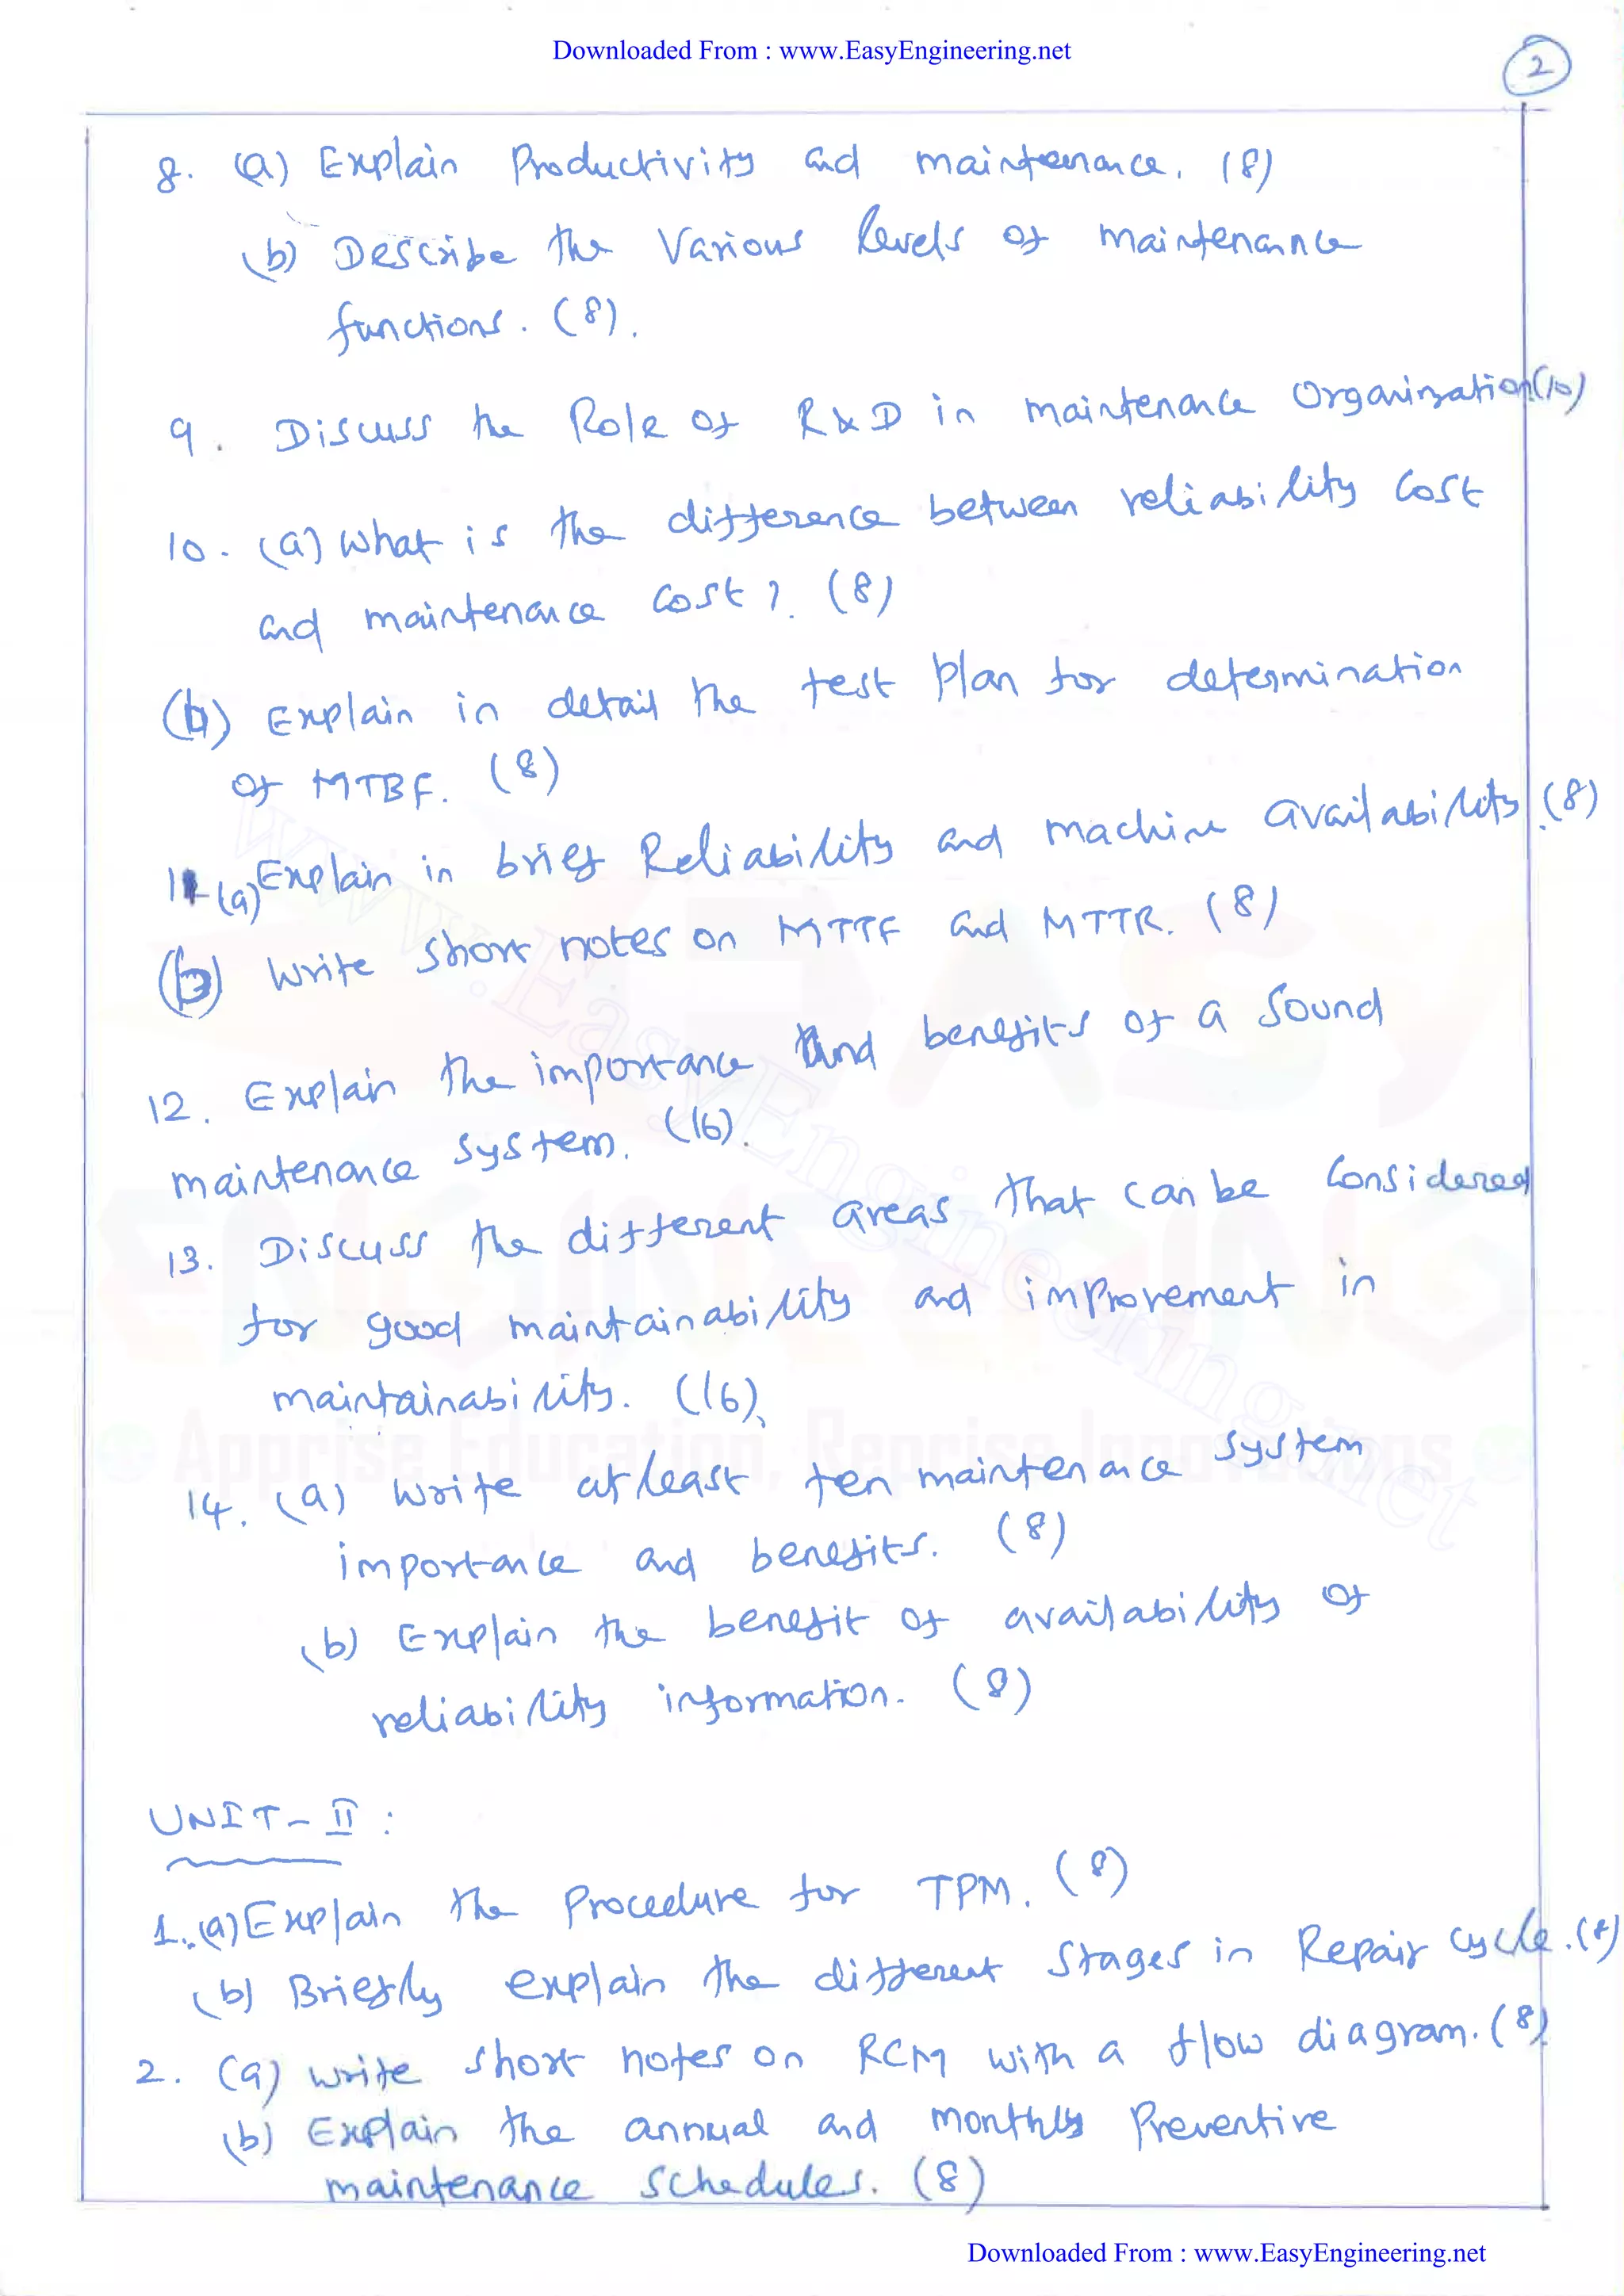 Downloaded From : www.EasyEngineering.net
2
8. (a) Explain Productivity and maintenance. (8)
(b) Describe the Various levels of maintenance
functions. (8).
9. Discuss the Role of R&D in maintenance Organization.(10)
10. (a) What is the difference between reliability Cost
and maintenance Cost?. (8)
(b) Explain in detail the test Plan for determination
of MTBF. (8)
11. (a) Explain in brief Reliability and machine availability.(8)
(b) Write Short notes on MTTF and MTTR. (8)
12. Explain the importance and benefits of a Sound
maintenance System. (16).
13. Discuss the different areas that can be Considered
for good maintainability and improvement in
maintainability. (16).
14. (a) Write atleast ten maintenance System
importance and benefits. (8)
(b) Explain the benefit of availability of
reliability information. (8)
UNIT-II :
1. (a) Explain the Procedure for TPM. (8)
(b) Briefly explain the different Stages in Repair Cycle. (8)
2. (a) Write Short notes on RCM with a flow diagram. (8)
(b) Explain the annual and monthly Preventive
maintenance Schedules. (8)
www.EasyEngineering.net
EASY
ENGINEERING
Apprise Education, Reprise Innovations
Downloaded From : www.EasyEngineering.net